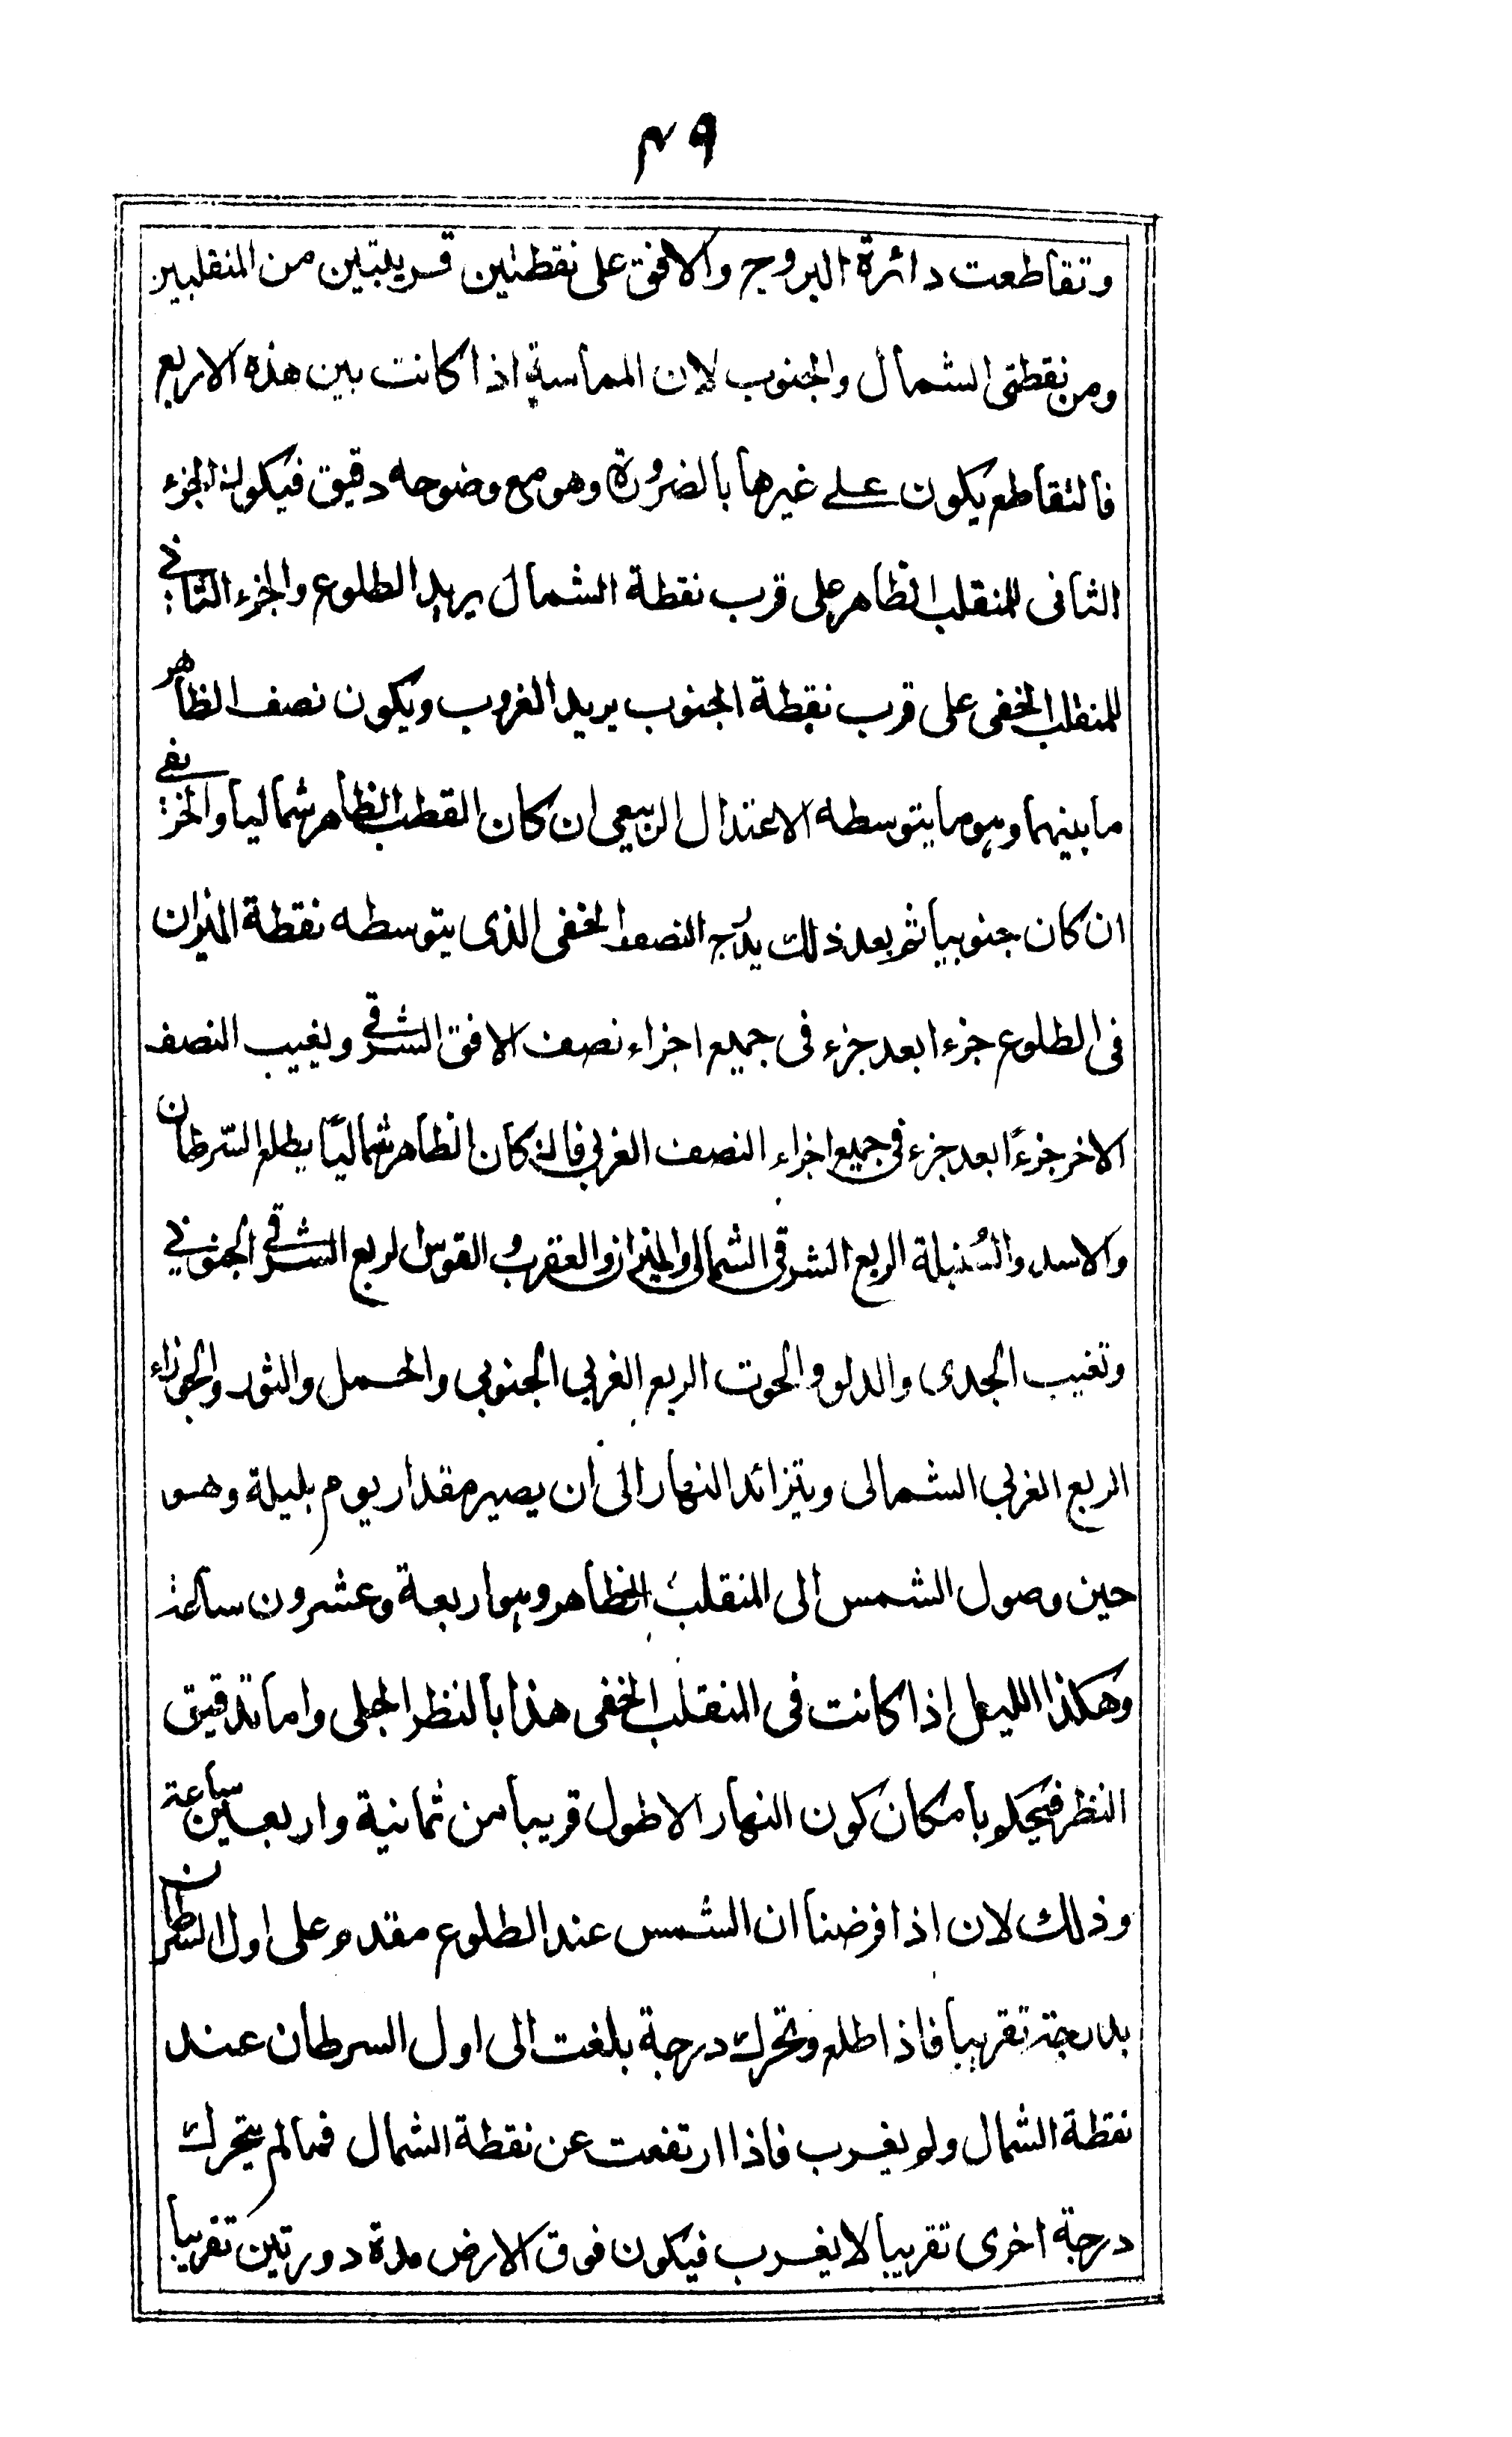 ٤٩
وتقاطعت دائرة البروج والافق على نقطتين قريبتين من المنقلبين
ومن نقطتى الشمال والجنوب لان المماسة اذا كانت بين هذه الاربع
فالتقاطع يكون على غيرها بالضرورة وهو مع وضوحه دقيق فيكون الجزء
الثانى للمنقلب الظاهر على قرب نقطة الشمال يريد الطلوع والجزء الثاني
للمنقلب الخفى على قرب نقطة الجنوب يريد الغروب ويكون نصف الظاهر
ما بينهما وهو ما يتوسطه الاعتدال الربيعى ان كان القطب الظاهر شماليا والخريفي
ان كان جنوبيا ثم بعد ذلك يدُج النصف الخفى الذى يتوسطه نقطة الميزان
فى الطلوع جزءا بعد جزء فى جميع اجزاء نصف الافق الشرقي ويغيب النصف
الاخر جزءًا بعد جزء فى جميع اجزاء النصف الغربي فان كان الظاهر شماليًا يطلع السّرطان
والاسد والسُنبلة الربع الشرقى الشمالى والميزان والعقرب والقوس الربع الشرقي الجنوبي
وتغيب الجدى والدلو والحوت الربع الغربي الجنوبي والحمل والثور والجوزاء
الربع الغربي الشمالى ويتزائد النهار الى ان يصير مقدار يوم بليلة وهو
حين وصول الشمس الى المنقلب الظاهر وهو اربعة وعشرون ساعة
وهكذا الليل اذا كانت فى المنقلب الخفى هذا بالنظر الجلى واما تدقيق
النظر فيحكم بامكان كون النهار الاطول قريبا من ثمانية واربعين ساعة
وذلك لان اذا فرضنا ان الشمس عند الطلوع مقدم على اول السرطان
بدرجة تقريبا فاذا طلع وتحرك درجة بلغت الى اول السرطان عند
نقطة الشمال ولم يغرب فاذا ارتفعت عن نقطة الشمال فما لم يتحرك
درجة اخرى تقريبا لا يغرب فيكون فوق الارض مدة دورتين تقريبا